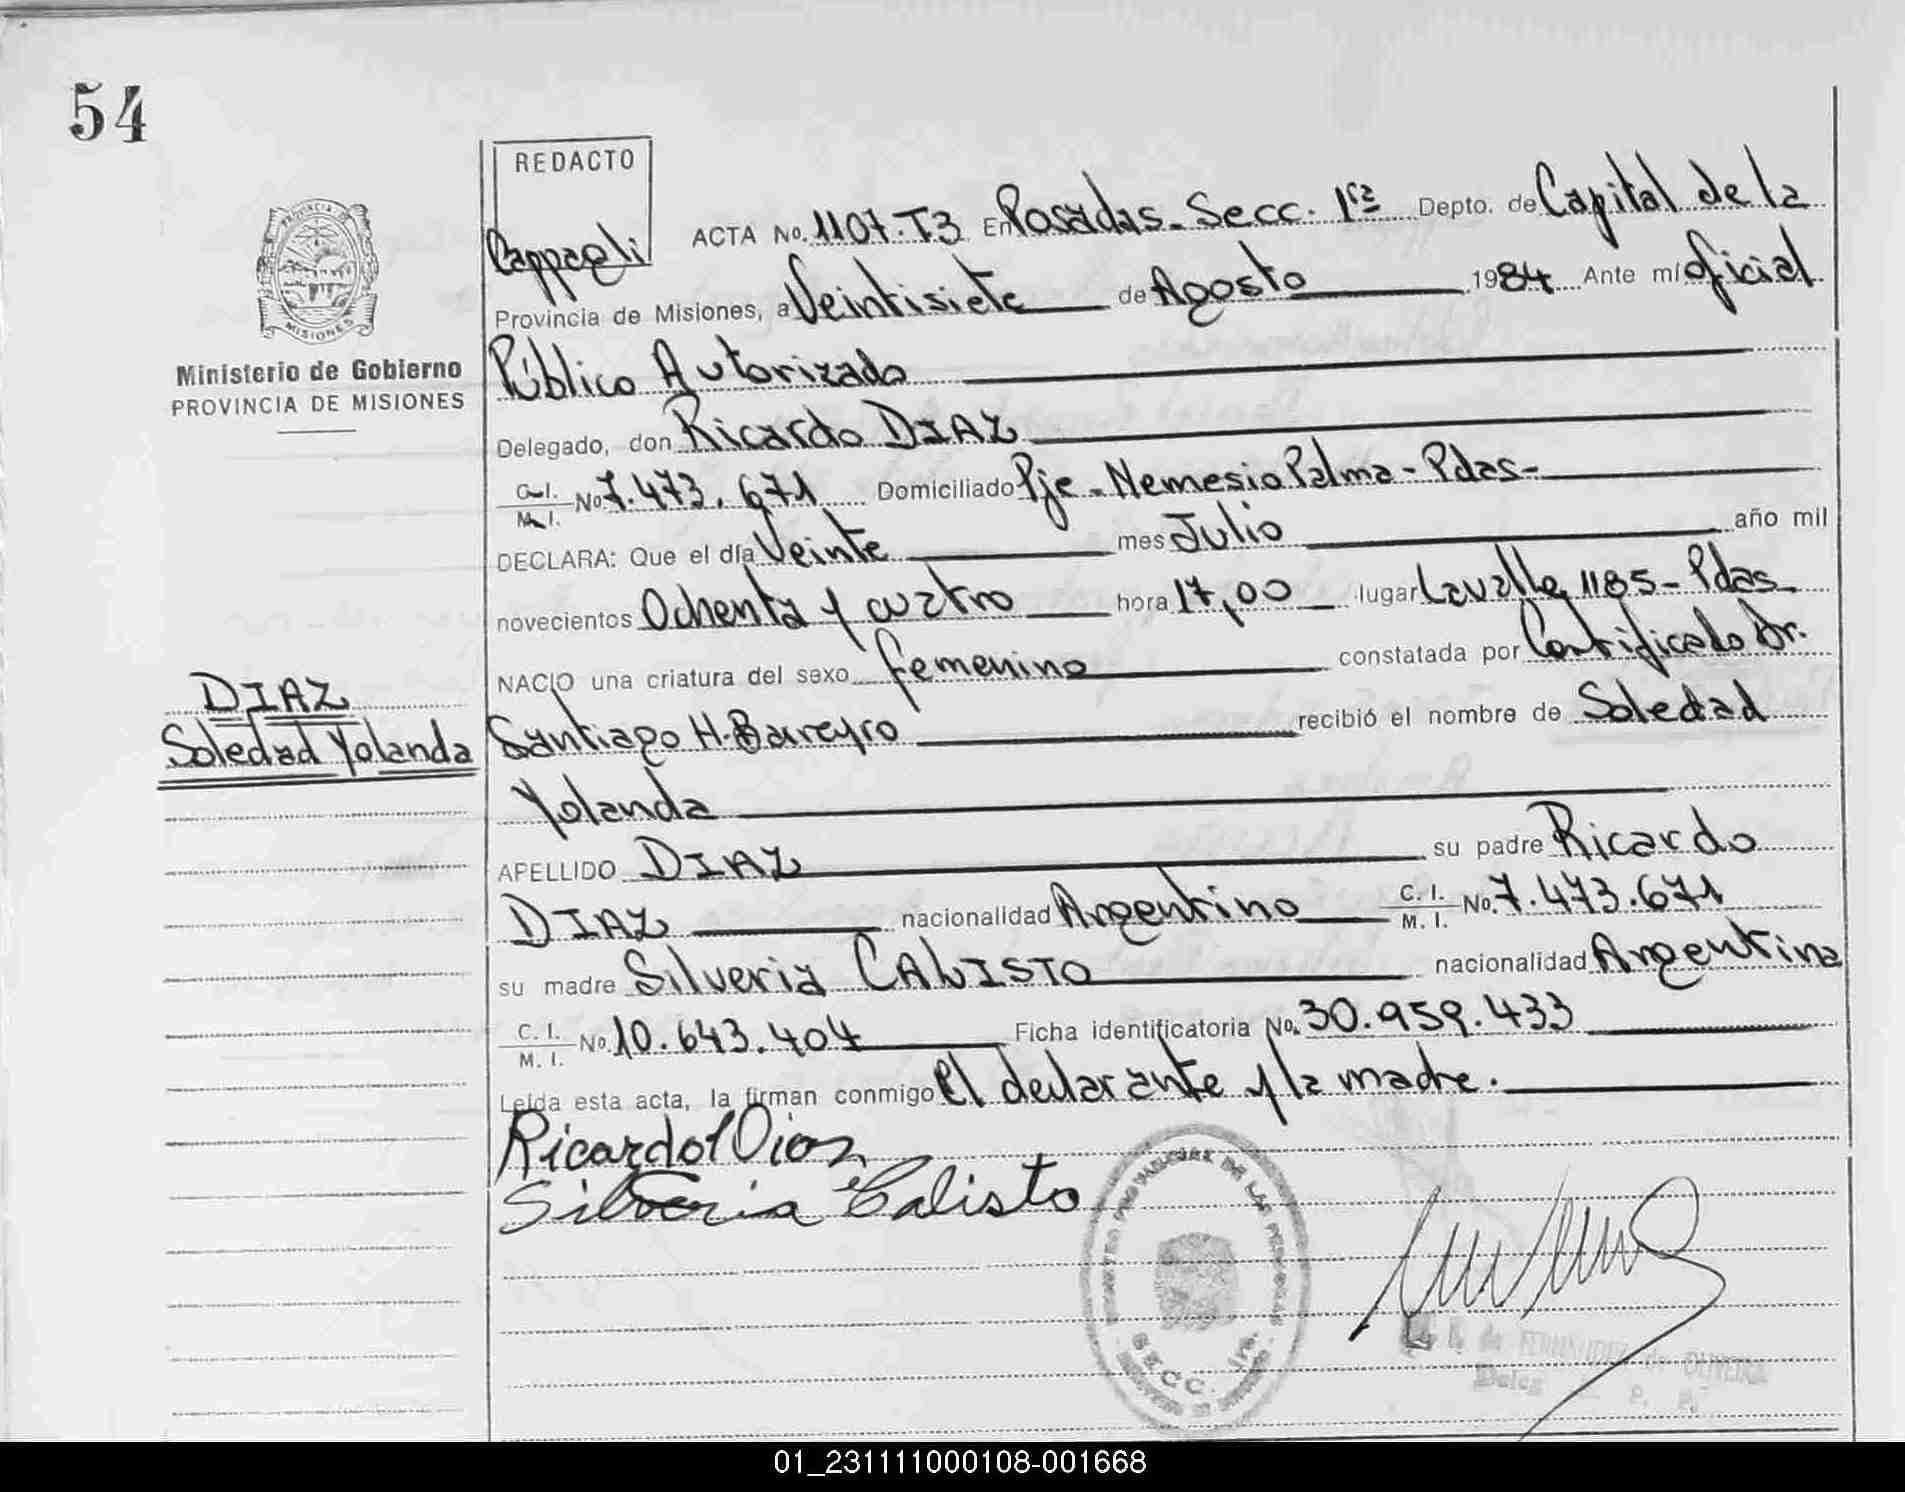 54
REDACTO
Cappagli
ACTA No. 1107.T3 En Posadas-Secc. 1ra Depto. de Capital de la
Provincia de Misiones, a Veintisiete de Agosto 1984 Ante mí oficial
Público Autorizado
Delegado, don Ricardo DIAZ
C.I. M.I. No 7.473.671 Domiciliado Pje-Nemesio Palma-Pdas-
DECLARA: Que el día Veinte mes Julio año mil
novecientos Ochenta y cuatro hora 17,00 lugar Lavalle 1185-Pdas-
NACIO una criatura del sexo femenino constatada por Certificado Dr.
Santiago H. Barreyro recibió el nombre de Soledad
Yolanda
APELLIDO DIAZ su padre Ricardo
DIAZ nacionalidad Argentino C. I. M. I. No. 7.473.671
su madre Silveria CALISTO nacionalidad Argentina
C. I. M. I. No 10.643.404 Ficha identificatoria No. 30.959.433
Leída esta acta, la firman conmigo el declarante y la madre.
Ricardo Dias
Silveria Calisto
PROVINCIA DE
MISIONES
Ministerio de Gobierno
PROVINCIA DE MISIONES
DIAZ
Soledad Yolanda
REGISTRO PROVINCIAL DE LAS PERSONAS
SECC. 1ra.
de FERNANDEZ de OLIVEIRA
01_231111000108-001668